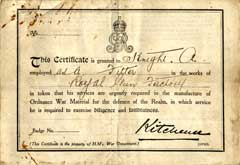 No.
This Certificate is granted to Knight. A.
employed as a Fitter in the works of
Royal Gun Factory
in token that his services are urgently required in the manufacture of
Ordnance War Material for the defence of the Realm, in which service
he is required to exercise Diligence and Faithfulness.
Kitchener
Badge No.
(This Certificate is the property of H.M.'s War Department.)